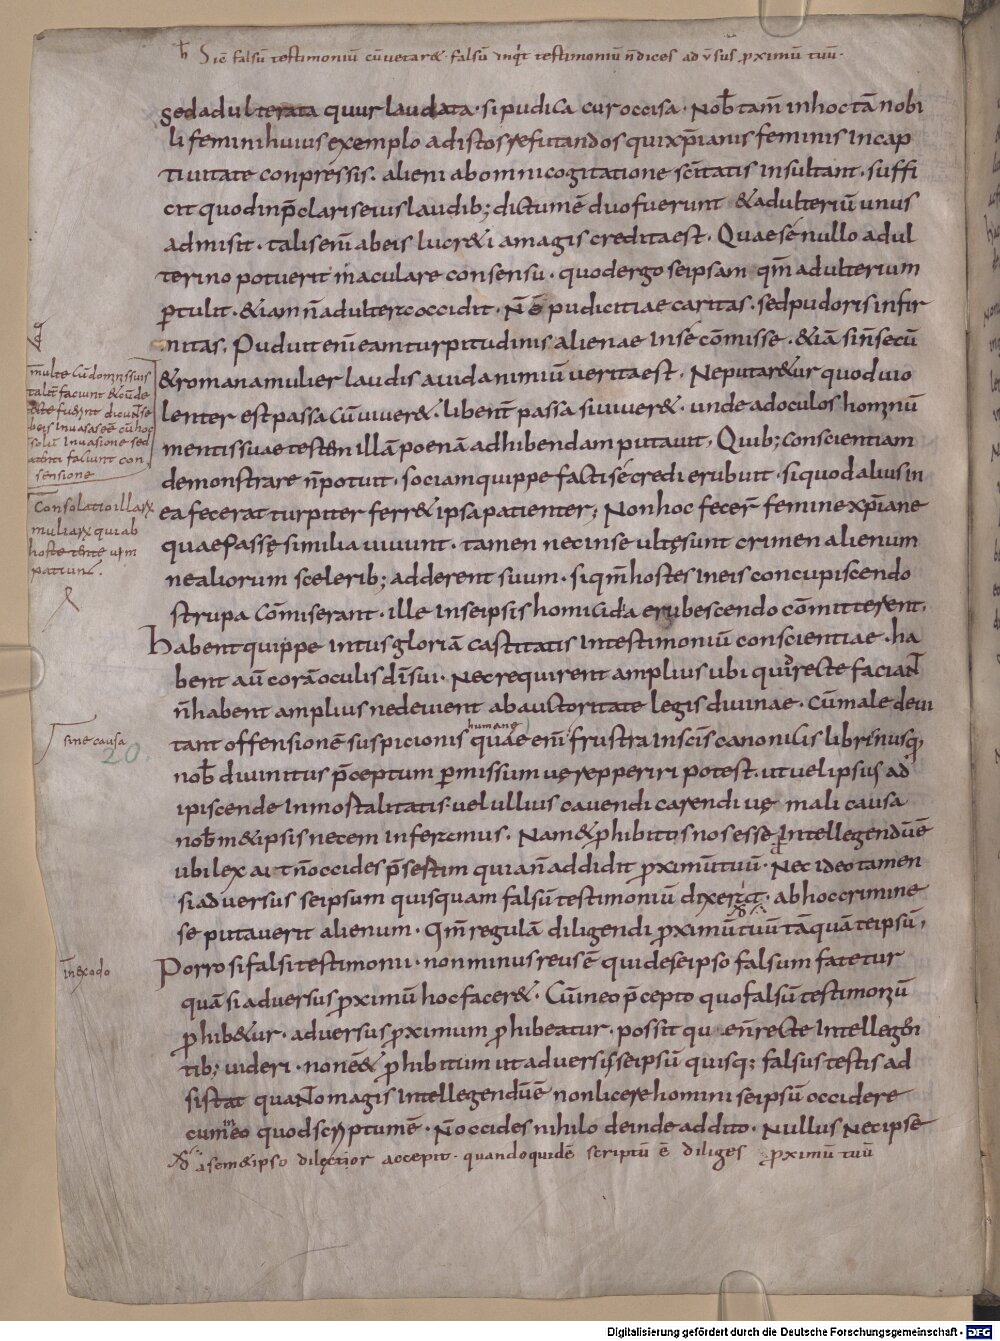 ħ Sic̄ falsū testimoniū cū vetar&· falsū inqͥt testimoniū n̄ dices ad v̄sus ꝓximū tuū·
sed adulterata quur laudata· si pudica cur occisa· Nob̄ tam̄ in hoc tā nobi
li feminę huius exemplo ad istos refutandos qui xp̄ianis feminis in cap
tivitate conpressis· alieni ab omni cogitatione sc̄itatis insultant· suffi
cit quod in p̄claris eius laudib; dictum ē duo fuerunt & adulteriū unus
admisit· talis eni ab eis lucr&ia magis credita est· Quae se nullo adul
terino potuerit maculare consensu· quod ergo se ipsam qm̄ adulterium
ꝑtulit· & iam n̄ adultero occidit· N̄ ē pudicitiae caritas· sed pudoris infir
mitas· Puduit enī eam turpitudinis alienae in se cōmisse· & iā si n̄ secū
& romana mulier laudis auida nimiū verita est· Ne putar&ur quod uio
lenter est passa cū viver&· libent̄ passa si uiver&· unde ad oculos hominū
mentis suae testem illā poenā adhibendam putauit· Quib; conscientiam
demonstrare n̄ potuit· sociam quippe facti se credi erubuit· si quod alius in
ea fecerat turpiter ferr& ipsa patienter; Non hoc fecer̄ femine xp̄iane
quae passę similia uiuunt· tamen nec in se ultę sunt crimen alienum
ne aliorum sclerib; adderent suum· si qm̄ hostes in eis concupiscendo
strupa cōmiserant· ille in se ipsis homicidia erubescendo cōmitterent·
Habent quippe intus gloriā castitatis in testimoniū conscientiae· ha
bent aū corā oculis dī sui· Nec requirunt amplius ubi quid recte faciant
n̄ habent amplius ne devient ab auctoritate legis divinae· cū male devi
tant offensionē suspicionis humanę
quae enī frustra in sc̄is canonicis libris nusq;
nob̄ divinitus p̄ceptum ꝑmissum ue repperiri potest· ut uel ipsius ad
ipiscende inmortalitatis uel ullius cauendi carendi uę mali causa
nob̄ m&ipsis necem inferamus· Nam & ꝓhibitos nos esse intellegendū ē
ubi lex ait n̄ occides p̄sertim quia n̄ addidit ꝓximū tuū·
Nec ideo tamen
si adversus se ipsum quisquam falsū testimoniū dixerit· ab hoc crimine
se putaverit alienum· Qm̄ regulā diligendi ꝓximū tuū tāquā te ipsū·
Porro si falsi testimonii· non minus reus ē qui de se ipso falsum fatetur
quā si adversus ꝓximū hoc facer&· Cū in eo p̄cepto quo falsū testimoniū
ꝓhib&ur· adversus ꝓximum ꝓhibeatur· possit qu en̄ recte intellegēti
tib; videri· non e& ꝓhibitum ut adversus se ipsū quisq; falsus testis ad
sistat quanto magis intellegendū ē non licere homini se ipsū occidere
cum in eo quod scriptum ē· N̄ occides nihilo deinde addito· Nullus nec ipse
a sem&ipso dilectior accepit· quandoquidē scriptū ē diliges ꝓximū tuū
multe cū domnis suis
falsū testes
Consolatio illarꝝ
mulierꝝ qui ab
hoste
patiunt̄·
sine causa
20.
in exodo
Digitalisierung gefördert durch die Deutsche Forschungsgemeinschaft - DFG